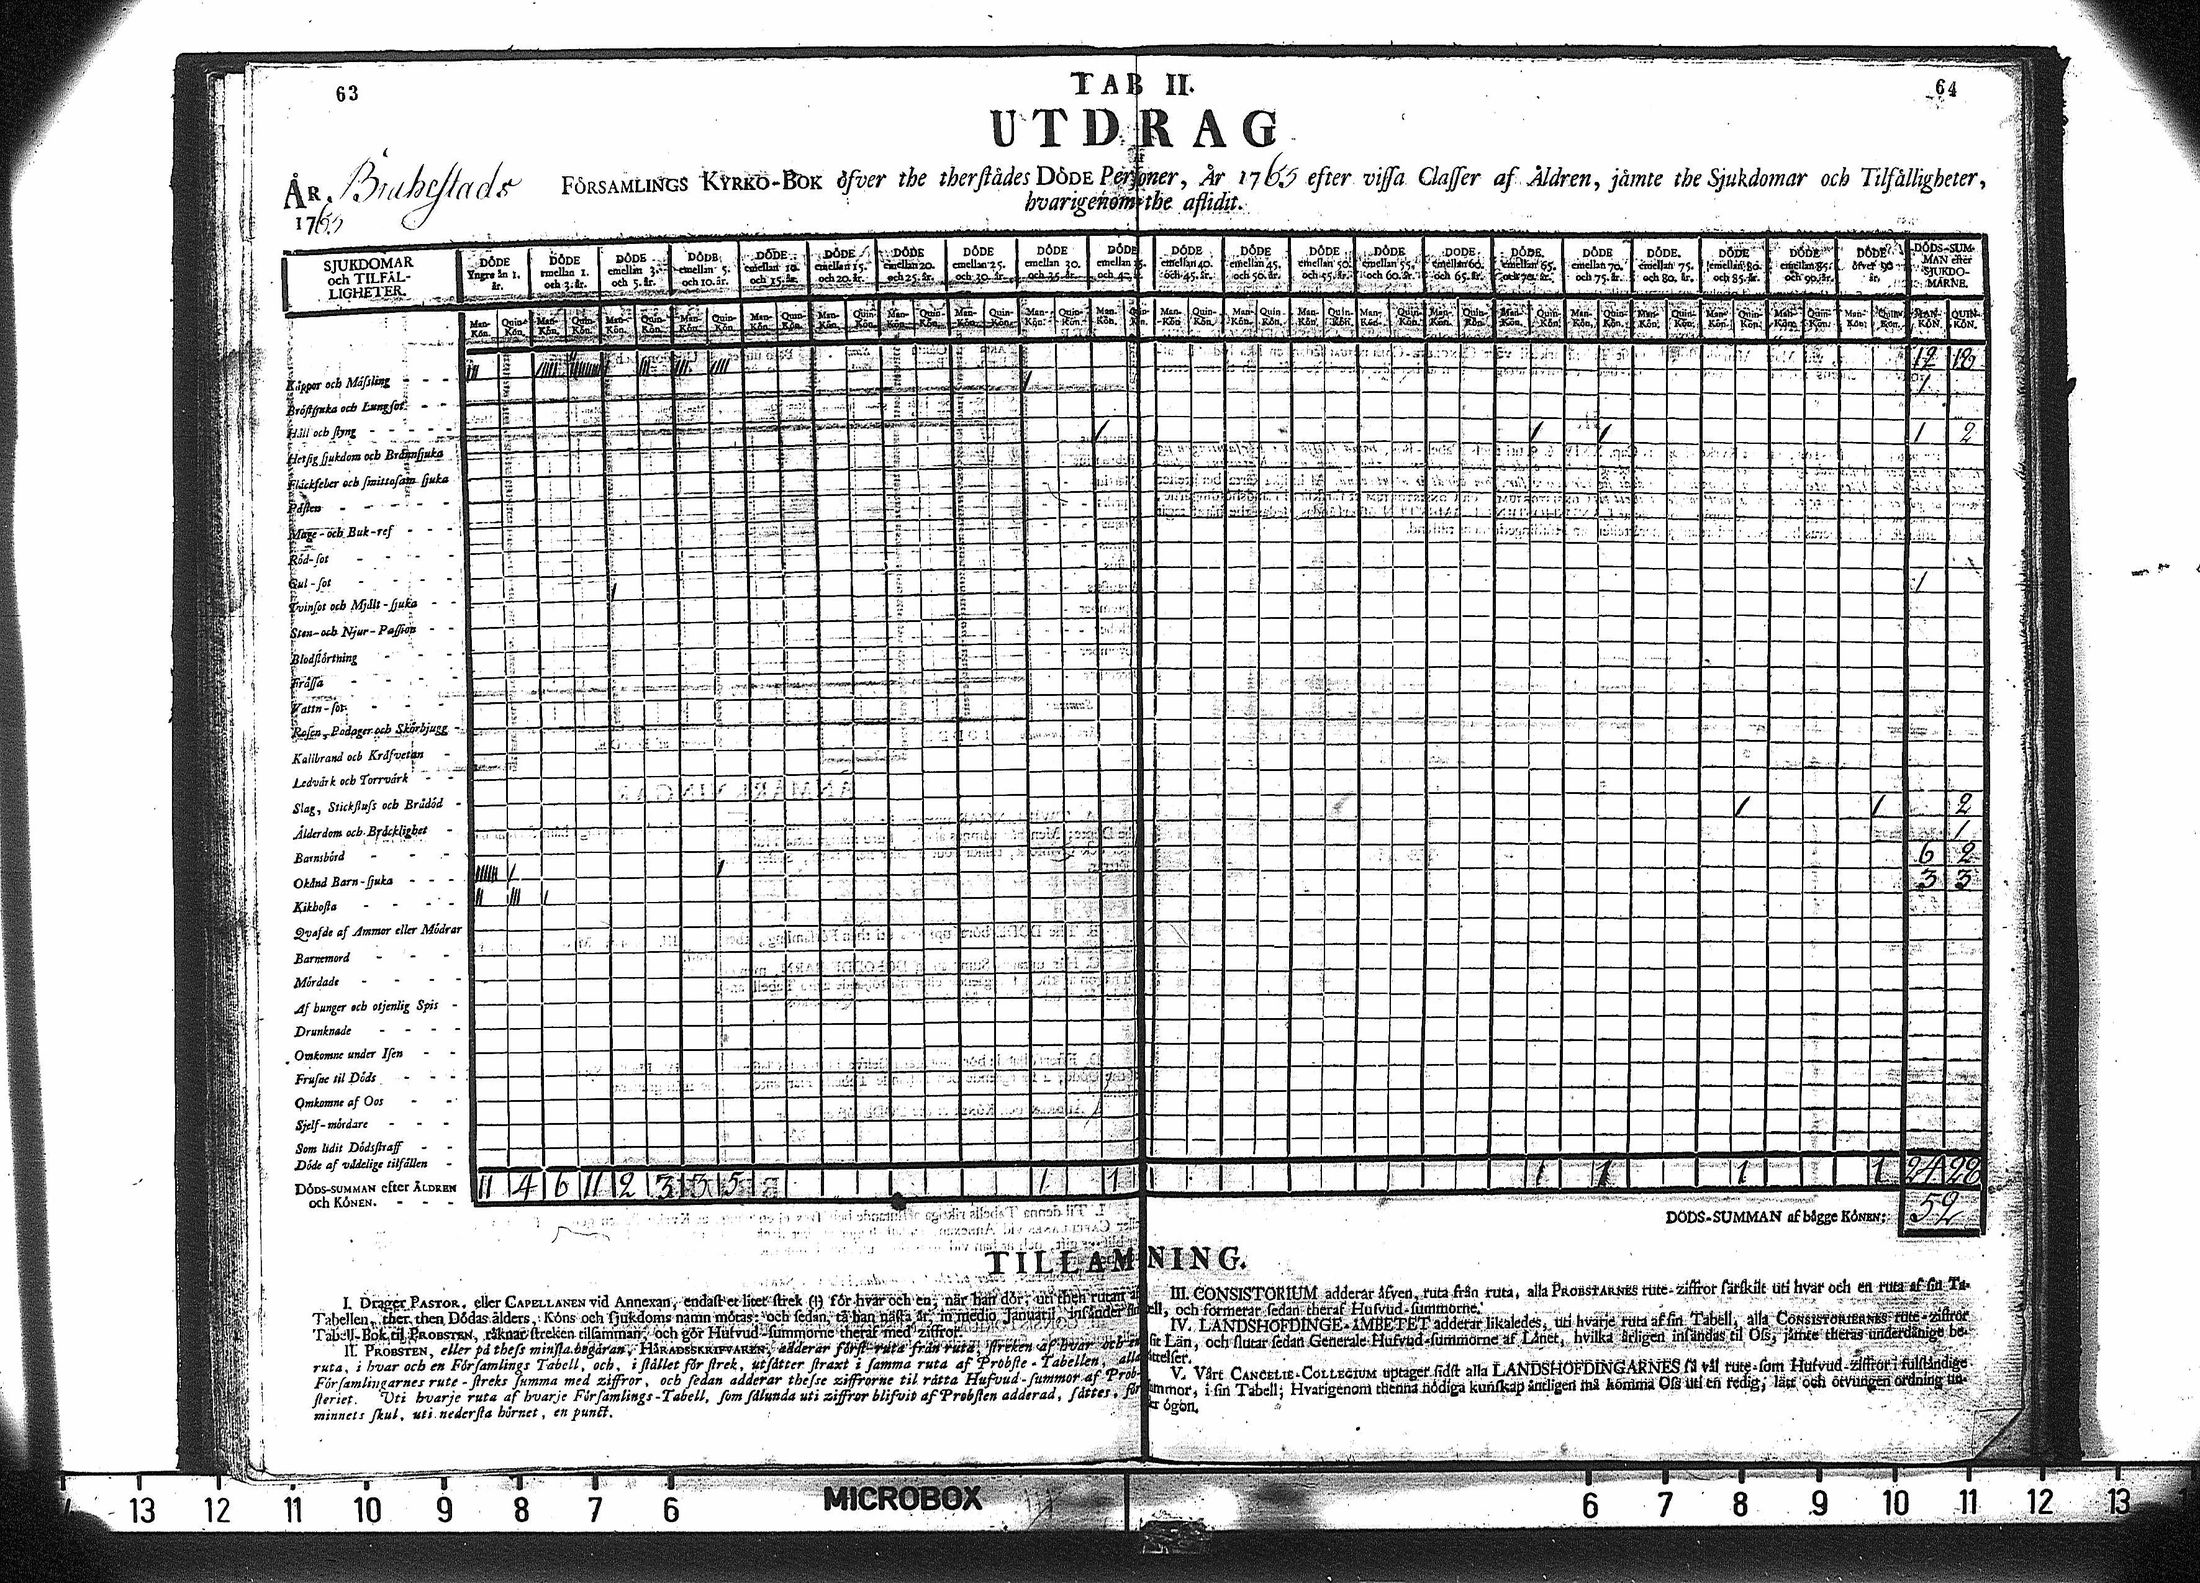 63
TAB II.
64
UTDRAG
ÅR. Brahestads FÖRSAMLINGS KYRKO-BOK öfver the therstädes DÖDE Personer, År 1765 efter vissa Classer af Åldren, jämte the Sjukdomar och Tilfälligheter,
1765
hvarigenom the aflidit.
SJUKDOMAR och TILFÄL-LIGHETER.
DÖDE Yngre än 1. år.
DÖDE emellan 1. och 3. år.
DÖDE emellan 3. och 5. år.
DÖDE emellan 5. och 10. år.
DÖDE emellan 10. och 15. år.
DÖDE emellan 15. och 20. år.
DÖDE emellan 20. och 25. år.
DÖDE emellan 25. och 30. år.
DÖDE emellan 30. och 35. år.
DÖDE emellan 35. och 40. år.
DÖDE emellan 40. och 45. år.
DÖDE emellan 45. och 50. år.
DÖDE emellan 50. och 55. år.
DÖDE emellan 55. och 60. år.
DÖDE emellan 60. och 65. år.
DÖDE emellan 65. och 70. år.
DÖDE emellan 70. och 75. år.
DÖDE emellan 75. och 80. år.
DÖDE emellan 80. och 85. år.
DÖDE emellan 85. och 90. år.
DÖDE öfver 90 år.
DÖDS-SUM-MAN efter SJUKDO-MARNE.
Man-Kön. Quin-Kön. Man-Kön. Quin-Kön. Man-Kön. Quin-Kön. Man-Kön. Quin-Kön. Man-Kön. Quin-Kön. Man-Kön. Quin-Kön. Man-Kön. Quin-Kön. Man-Kön. Quin-Kön. Man-Kön. Quin-Kön. Man-Kön. Quin-Kön. Man-Kön. Quin-Kön. Man-Kön. Quin-Kön. Man-Kön. Quin-Kön. Man-Kön. Quin-Kön. Man-Kön. Quin-Kön. Man-Kön. Quin-Kön. Man-Kön. Quin-Kön. Man-Kön. Quin-Kön. Man-Kön. Quin-Kön. Man-Kön. Quin-Kön. Man-Kön. Quin-Kön. MAN-KÖN. QUIN-KÖN.
Koppor och Mässling - - - 12 18
Bröstsjuka och Lungsot - - / 1
Håll och styng - - - -
Hetsig sjukdom och Brännsjuka / / / 1 2
Fläckfeber och smittosam sjuka
Pästen - - - -
Mage- och Buk-ref - - -
Röd-sot - - - -
Gul-sot - - - -
Tvinsot och Mjält-sjuka - - / 1
Sten- och Njur-Passion - -
Blodstörtning - - -
Frässa - - - -
Vattn-sot - - - -
Rosen, Podager och Skörbjugg -
Kallbrand och Kräfvetan -
Ledvärk och Torrvärk - -
Slag, Stickfluss och Brådöd -
Ålderdom och Bräcklighet - / / 2
Barnsbörd - - - 1
Okänd Barn-sjuka - - - 6 2
Kikhosta - - - - 3 3
Qvafde af Ammor eller Mödrar
Barnemord - - - -
Mördade - - - -
Af hunger och otjenlig Spis -
Drunknade - - - -
Omkomne under Isen - -
Frusne til Döds - - -
Omkomne af Oos - -
Sjelf-mördare - - -
Som lidit Dödsstraff - -
Döde af vådelige tilfällen -
DÖDS-SUMMAN efter ÅLDREN och KÖNEN. - - - 11 4 6 11 2 3 3 5 1 1 1 1 1 1 24 28
DÖDS-SUMMAN af bägge KÖNEN: 52
TILLÄMNING.
I. Drager PASTOR, eller CAPELLANEN vid Annexan, endast et litet strek (|) för hvar och en, när han dör, uti then rutan af
Tabellen, ther then Dödas ålders, Köns och sjukdoms namn mötas: och sedan, tå han nästa år, in medio Januarii, insänder sin
Tabell-Bok til PROBSTEN, räknar streken tilsamman, och gör Hufvud-summorne theraf med ziffror.
II. PROBSTEN, eller på thess minsta begäran, HÄRADSSKRIFVAREN, adderar först ruta från ruta, streken af hvar och en
ruta, i hvar och en Församlings Tabell, och, i stället för strek, utsätter straxt i samma ruta af Probste-Tabellen, alla
Församlingarnes rute-streks summa med ziffror, och sedan adderar thesse ziffrorne til rätta Hufvud-summor af Prob-
steriet. Uti hvarje ruta af hvarje Församlings-Tabell, som sålunda uti ziffror blifvit af Probsten adderad, sättes, för
minnets skul, uti nedersta hörnet, en punct.
III. CONSISTORIUM adderar äfven, ruta från ruta, alla PROBSTARNES rute-ziffror särskilt uti hvar och en ruta af sin Ta-
bell, och formerar sedan theraf Hufvud-summorne.
IV. LANDSHÖFDINGE-ÄMBETET adderar likaledes, uti hvarje ruta af sin Tabell, alla CONSISTORIERNES rute-ziffror
för Län, och slutar sedan Generale Hufvud-summorne af Länet, hvilka årligen insändas til Oss, jämte theras underdånige be-
rättelser.
V. Vårt CANCELIE-COLLEGIUM uptager sidst alla LANDSHÖFDINGARNES så väl rute-som Hufvud-ziffror i fulständige
summor, i sin Tabell; Hvarigenom thenna nödiga kunskap äntligen må komma Oss uti en redig, lätt och otvungen ordning un-
der ögon.
13 12 11 10 9 8 7 6 MICROBOX 6 7 8 9 10 11 12 13